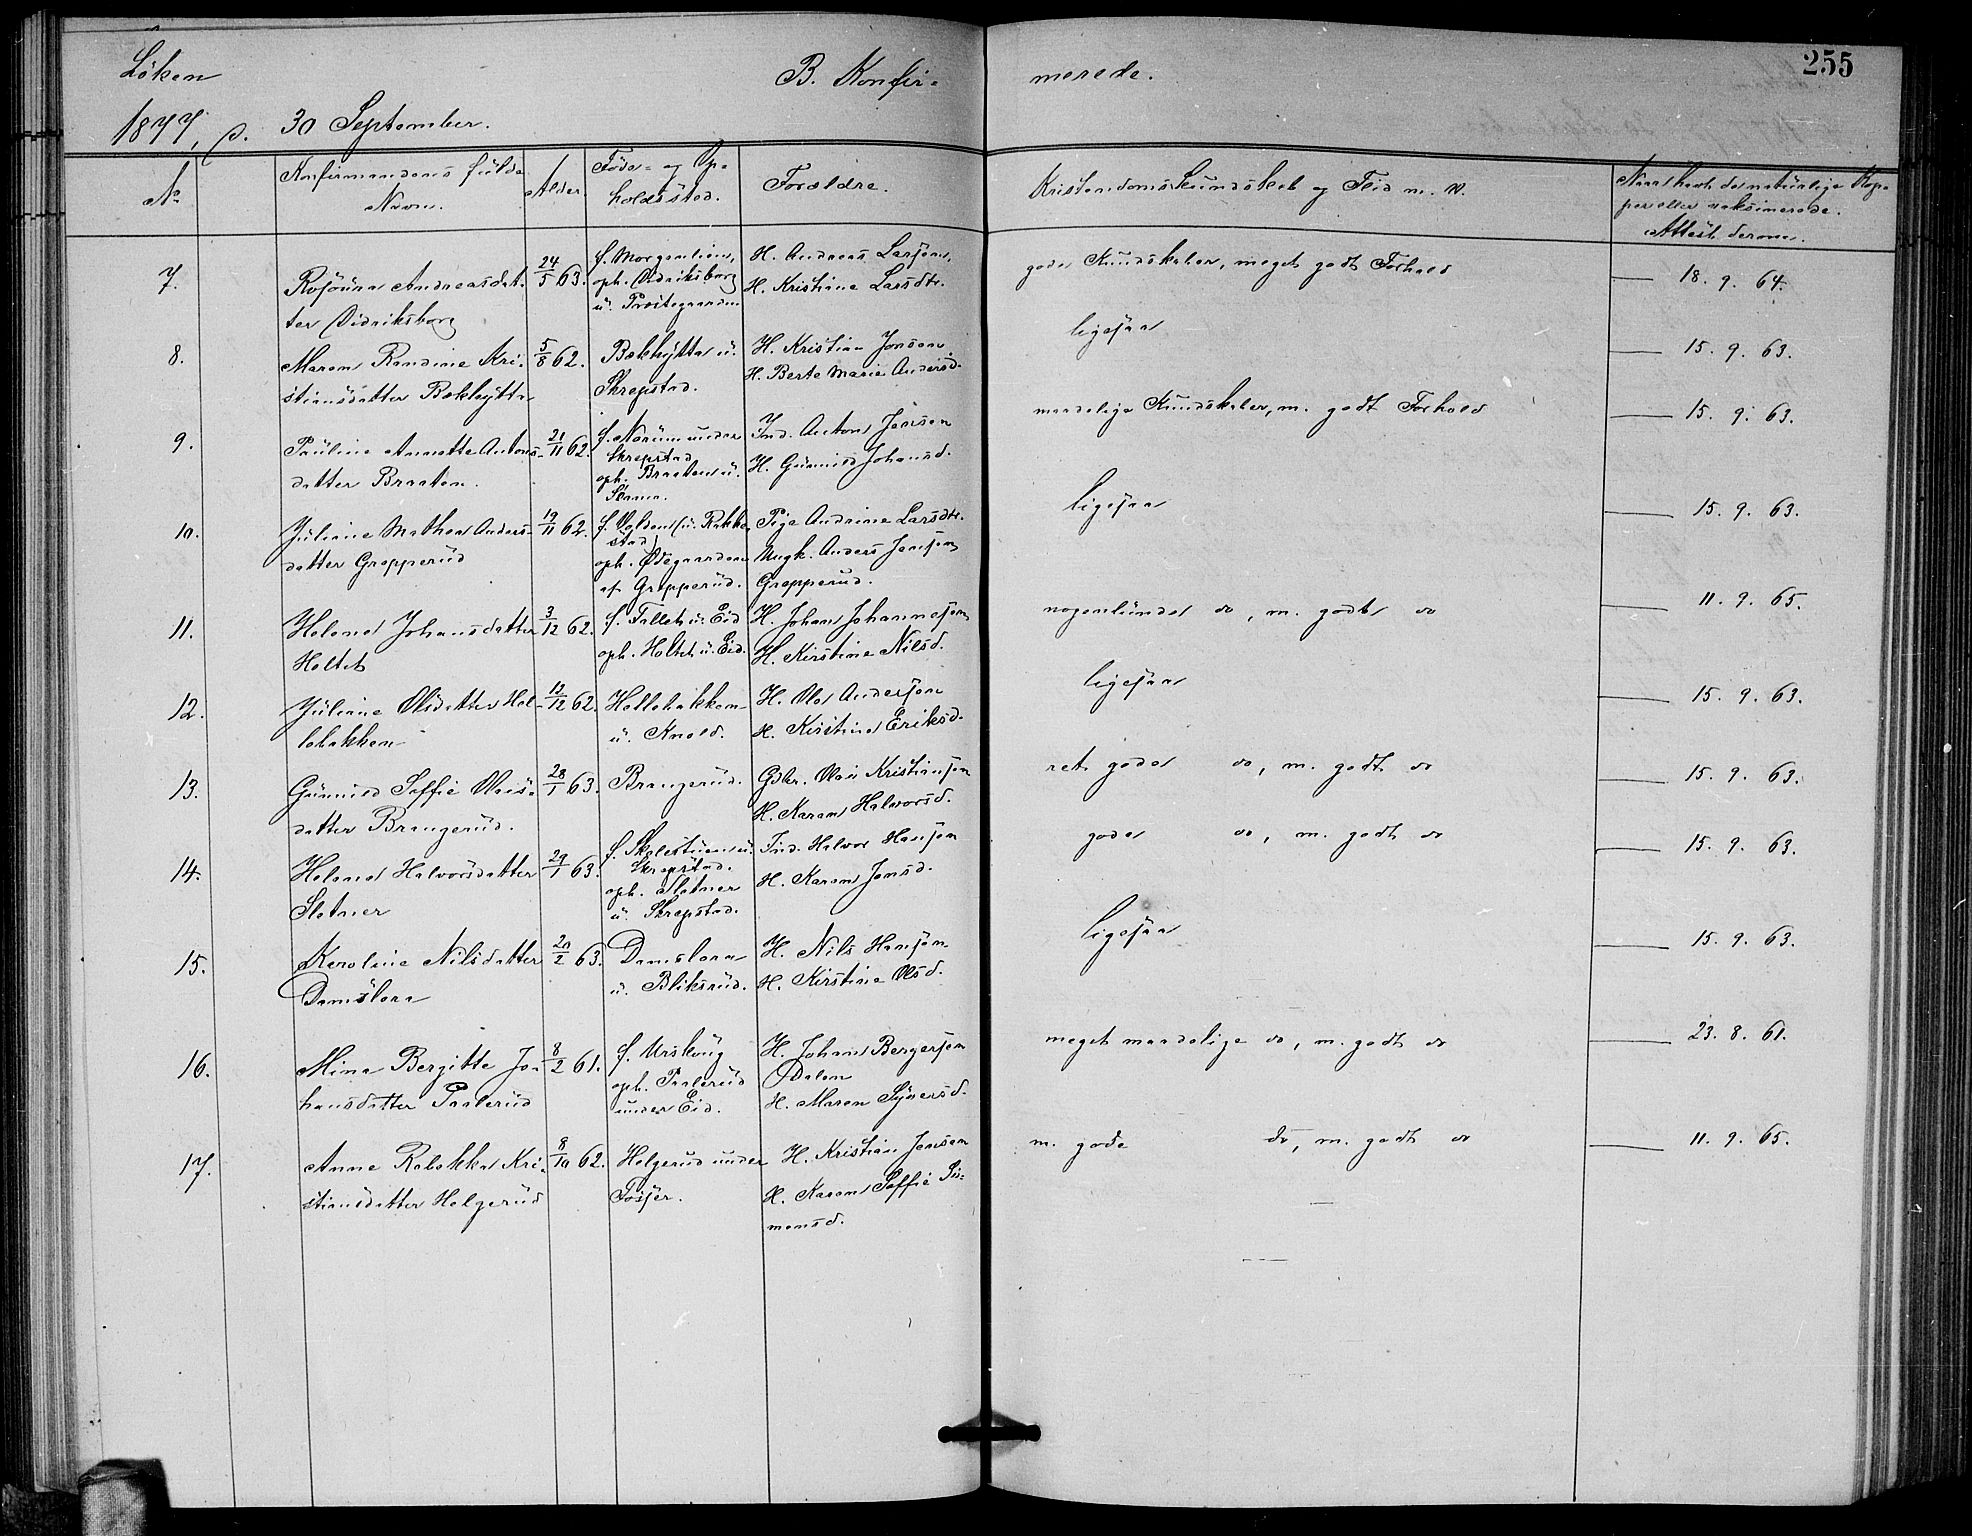 Löken
B. Konfir=
merede.
255
1877, d. 30 September.
No
Konfirmandens fulde
Navn.
Alder.
Føde= og Op=
holdsstad.
Forældre.
Kristendomskundskab og Flid m. v.
Naar havt de naturlige Kop=
per eller vaksinerede.
Attest derom.
7.
Andreasdat=
ter Didriksborg
24/5 63.
f. Morgenlien,
oph. Didriksborg
u. Prestegaarden
H. Andreas Larsen,
H. Kristiane Larsdtr.
gode Kundskaber, meget godt Forhold
18. 9. 64.
8.
Maren Randine Kri=
stiansdatter Bækhytta
5/8 62.
Bækhytta u.
Skrepstad.
H. Kristian Jonsen
H. Berte Marie Andersd.
ligesaa
15. 9. 63.
9.
Pauline Annette Antons=
datter Braaten.
21/11 62.
f. Norum under
Skrepstad
oph. Braaten u.
Ind. Anton Jensen
H. Gunnild Johansd.
maadelige Kundskaber, m. godt Forhold
15. 9. 63.
10.
Juliane Mathea Anders=
datter Gropperud
19/11 62.
f. (u. Rakke=
stad)
oph. Ødegaarden
af Gropperud.
Pige Andrine Larsdtr.
Ungk. Anders Jensen
Gropperud.
ligesaa
15. 9. 63.
11.
Helene Johansdatter
Holtet
3/12 62.
f. Fallet u. Eid
oph. Holtet u. Eid.
H. Johan Johannesen
H. Kirstine Nilsd.
nogenlunde do, m. godt do
11. 9. 65.
12.
Juliane Olsdatter Hel=
lebakken
12/12 62.
Hellebakken
u. Knold.
H. Ole Andersen
H. Kirstine Eriksd.
ligesaa
15. 9. 63.
13.
Gunnild Soffie Olais=
datter Brangerud.
28/1 63.
Brangerud.
Gdbr. Olai Kristiansen
H. Karen Halvorsd.
ret gode do, m. godt do
15. 9. 63.
14.
Helene Halvorsdatter
Slotner
29/1 63.
f. Skolestuen u.
Skrepstad.
oph. Slotner
u. Skrepstad.
Ind. Halvor Hansen
H. Karen Jensd.
gode do, m. godt do
15. 9. 63.
15.
Karoline Nilsdatter
Damslora
20/2 63.
Damslora
u. Bliksrud.
H. Nils Hansen
H. Kirstine Olsd.
ligesaa
15. 9. 63.
16.
Mina Bergitte Jo=
hansdatter Paalerud
8/2 61.
f. Urskoug
oph. Paalerud
under Eid.
H. Johan Bergersen
Dalen
H. Maren Syversd.
meget maadelige do, m. godt do
23. 8. 61.
17.
Anne Rebekka Kri=
stiansdatter Helgerud
8/10 62.
Helgerud under
Fosser.
H. Kristian Jensen
H. Karen Soffie Si=
monsd.
m. gode do, m. godt do
11. 9. 65.